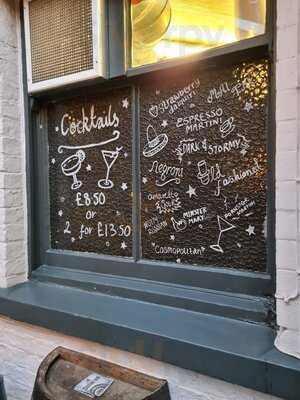 Cocktails
£8.50
or
2 for £13.50
Strawberry
Daquiri
Mojito
ESPRESSO
MARTINI
DARK & STORMY
Negroni
Old
Fashioned
amaretto
MONSTER
MARY
PORNSTAR
MARTINI
Cosmopolitan